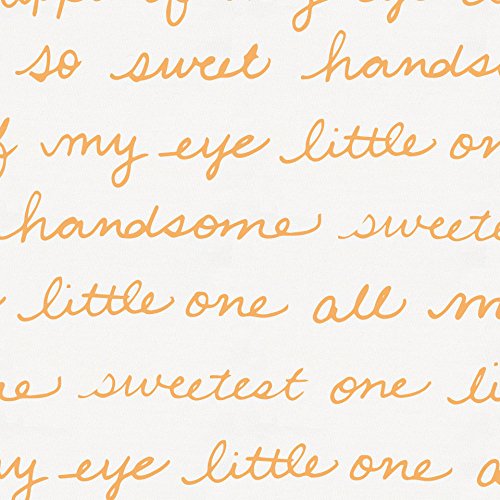 my eye
so sweet hands
my eye little on
handsome sweete
little one all m
sweetest one li
my eye little one a